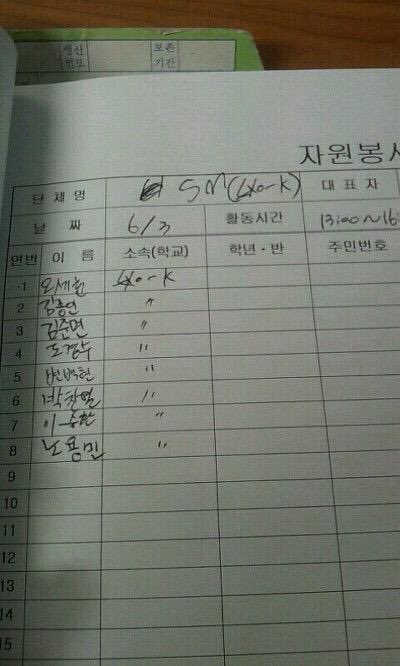 생산
번호
보존
기간
자원봉사
단체명 SM(EXO-K) 대표자
날짜 6/3 활동시간 13:00~16:
연번 이름 소속(학교) 학년·반 주민번호
1 오세훈 EXO-K
2 김종인 〃
3 김준면 〃
4 도경수 〃
5 변백현 〃
6 박찬열 〃
7 이승환 〃
8 노용민 〃
9
10
11
12
13
14
15